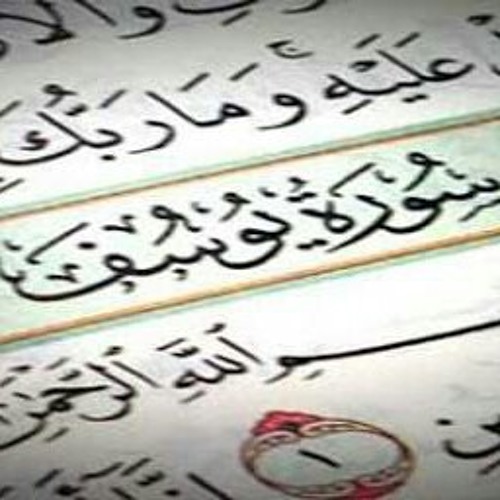 وَالْأَ
عَلَيْهِ ۚ وَمَا رَبُّكَ
سُورَةُ يُوسُفَ
ـسْمِ اللَّهِ الرَّحْمَٰنِ
١